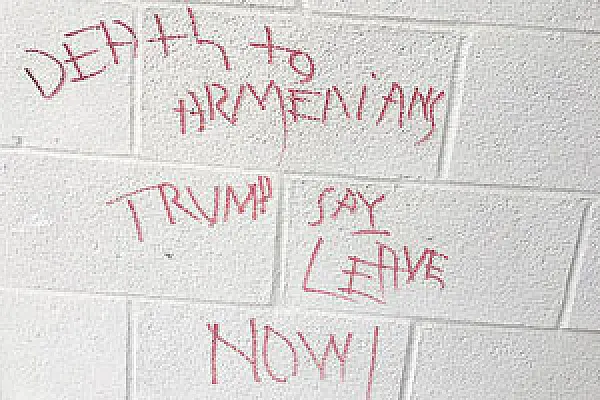 DEATh to
ARMENiANS
TRUMP SAY
LEAVE
NOW!